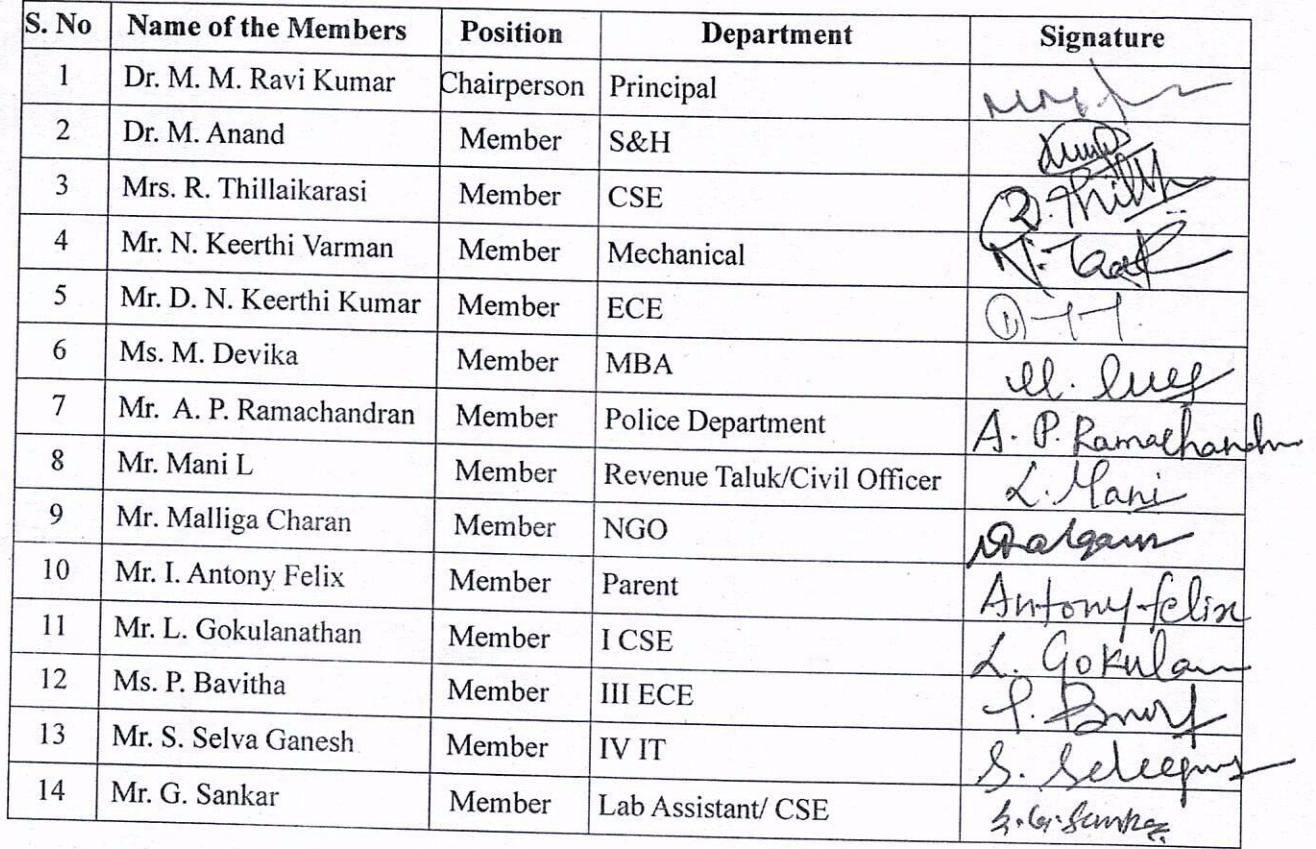 S. No Name of the Members Position Department Signature
1 Dr. M. M. Ravi Kumar Chairperson Principal
2 Dr. M. Anand Member S&H
3 Mrs. R. Thillaikarasi Member CSE
4 Mr. N. Keerthi Varman Member Mechanical
5 Mr. D. N. Keerthi Kumar Member ECE
6 Ms. M. Devika Member MBA
7 Mr. A. P. Ramachandran Member Police Department A. P. Ramachandn
8 Mr. Mani L Member Revenue Taluk/Civil Officer L. Mani
9 Mr. Malliga Charan Member NGO
10 Mr. I. Antony Felix Member Parent Antony felix
11 Mr. L. Gokulanathan Member I CSE L. Gokulan
12 Ms. P. Bavitha Member III ECE
13 Mr. S. Selva Ganesh Member IV IT
14 Mr. G. Sankar Member Lab Assistant/ CSE